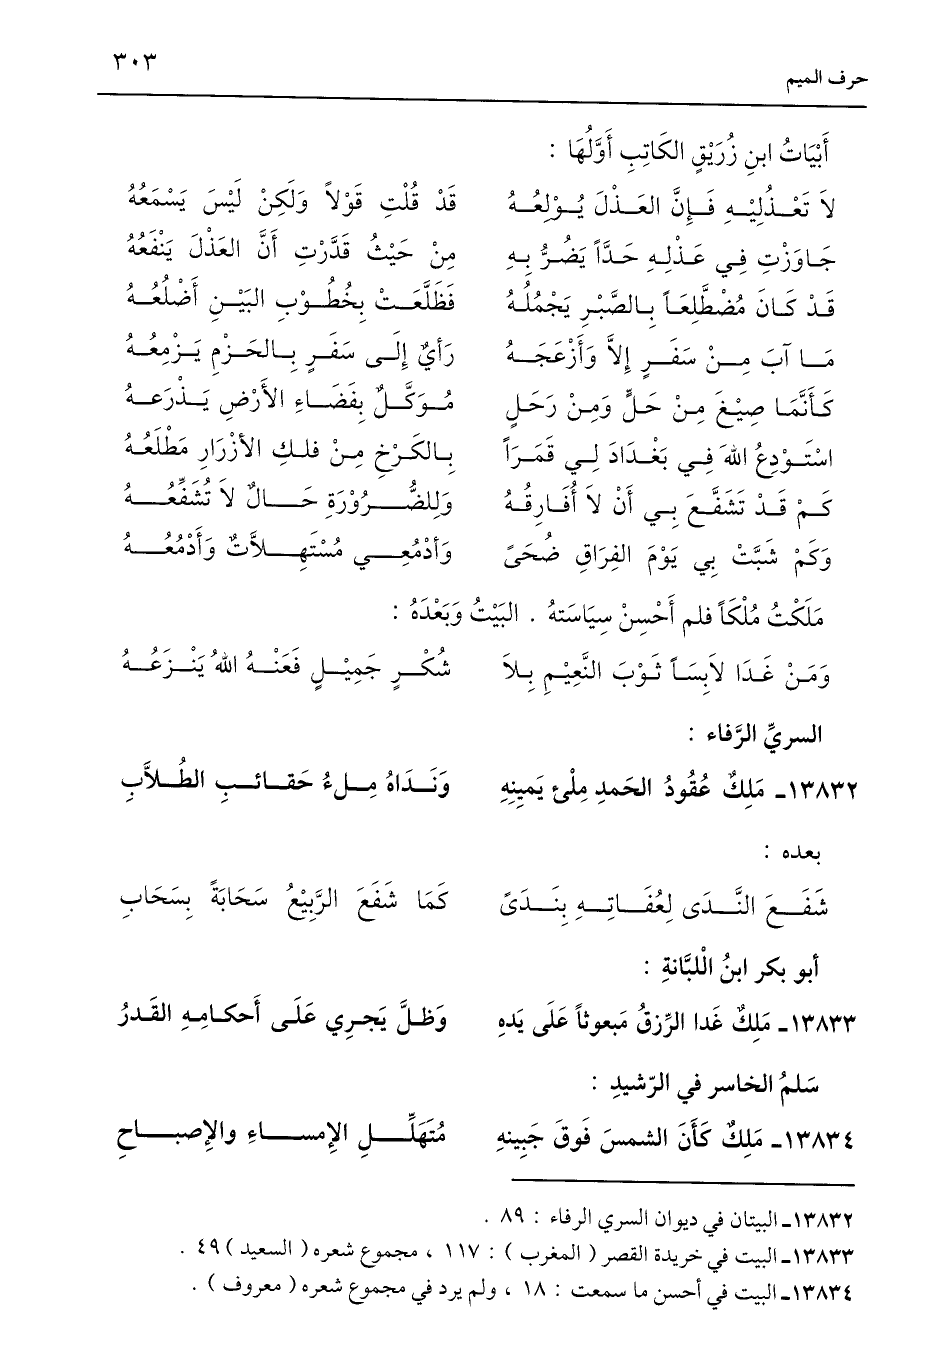 ٣٠٣
حرف الميم
أَبْيَاتُ ابنِ زُرَيْقٍ الكَاتِبِ أَوَّلُهَا :
لاَ تَعْذُلِيْهِ فَإِنَّ العَذْلَ يُوْلِعُهُ قَدْ قُلْتِ قَوْلاً وَلَكِنْ لَيْسَ يَسْمَعُهُ
جَاوَزْتِ فِي عَذْلِهِ حَدَّاً يَضُرُّ بِهِ مِنْ حَيْثُ قَدَّرْتِ أَنَّ العَذْلَ يَنْفَعُهُ
قَدْ كَانَ مُضْطَلِعَاً بِالصَّبْرِ يَحْمُلُهُ فَظَلَّعَتْ بِخُطُوْبِ البَيْنِ أَضْلُعُهُ
مَا آبَ مِنْ سَفَرٍ إِلاَّ وَأَزْعَجَهُ رَأيٌ إِلَى سَفَرٍ بِالحَزْمِ يَزْمِعُهُ
كَأَنَّمَا صِيْغَ مِنْ حَلٍّ وَمِنْ رَحَلٍ مُوَكَّلٌ بِفَضَاءِ الأَرْضِ يَذْرَعهُ
اسْتَوْدِعُ اللهَ فِي بَغْدَادَ لِي قَمَرَاً بِالكَرْخِ مِنْ فلكِ الأزْرَارِ مَطْلَعُهُ
كَمْ قَدْ تَشَفَّعَ بِي أَنْ لاَ أُفَارِقُهُ وَلِلضُّرُوْرَةِ حَالٌ لاَ تُشَفِّعُهُ
وَكَمْ شَبَّتْ بِي يَوْمَ الفِرَاقِ ضُحَىً وَأَدْمُعِي مُسْتَهِلاَّتٌ وَأَدْمُعُهُ
مَلَكْتُ مُلْكَاً فلم أَحْسِنْ سِيَاسَتهُ . البَيْتُ وَبَعْدَهُ :
وَمَنْ غَدَا لاَبِسَاً ثَوْبَ النَّعِيْمِ بِلاَ شُكْرٍ جَمِيْلٍ فَعَنْهُ اللهُ يَنْزَعُهُ
السريِّ الرَّفاء :
١٣٨٣٢ـ مَلِكٌ عُقُودُ الحَمدِ مِلْئ يَمينِهِ وَنَدَاهُ مِلءُ حَقائبِ الطُلاَّبِ
بعده :
شَفَعَ النَّدَى لِعُفَاتِهِ بِنَدَىً كَمَا شَفَعَ الرَّبِيْعُ سَحَابَةً بِسَحَابِ
أبو بكر ابنُ الْلبَّانَةِ :
١٣٨٣٣ـ مَلِكٌ غَدا الرِّزقُ مَبعوثاً عَلَى يَدهِ وَظلَّ يَجرِي عَلَى أَحكامِهِ القَدرُ
سَلمُ الخاسر في الرّشيدِ :
١٣٨٣٤ـ مَلِكٌ كَأَنَ الشمسَ فَوقَ جَبينِهِ مُتَهَلِّلِ الإمساءِ والإصباحِ
١٣٨٣٢ـ البيتان في ديوان السري الرفاء : ٨٩ .
١٣٨٣٣ـ البيت في خريدة القصر ( المغرب ) : ١١٧ ، مجموع شعره ( السعيد ) ٤٩ .
١٣٨٣٤ـ البيت في أحسن ما سمعت : ١٨ ، ولم يرد في مجموع شعره ( معروف ) .